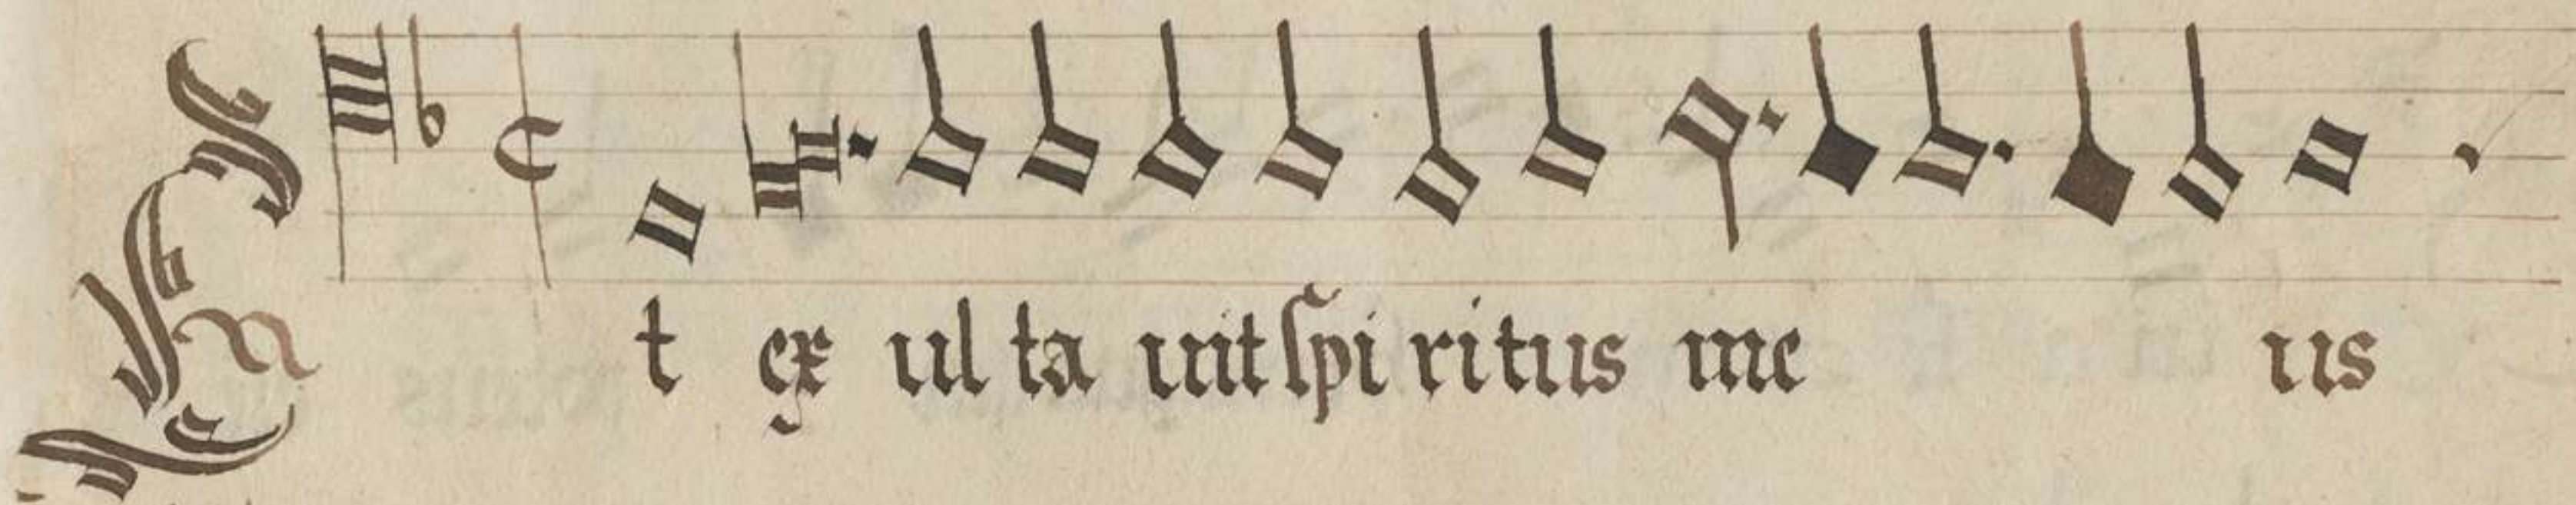 Et ex ul ta uit spi ritus me us